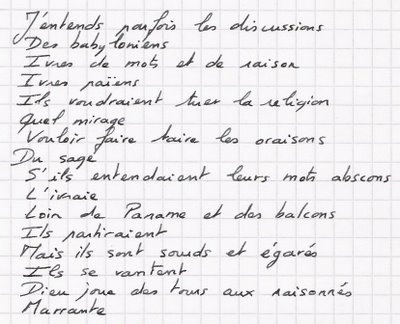 J'entends parfois les discussions
Des babyloniens
Ivres de mots et de raison
Ivres païens
Ils voudraient tuer la religion
Quel mirage
Vouloir faire taire les oraisons
Du sage
S'ils entendaient leurs mots abscons
L'ivraie
Loin de Paname et des balcons
Ils partiraient
Mais ils sont sourds et égarés
Ils se vantent
Dieu joue des tours aux raisonnés
Marrante